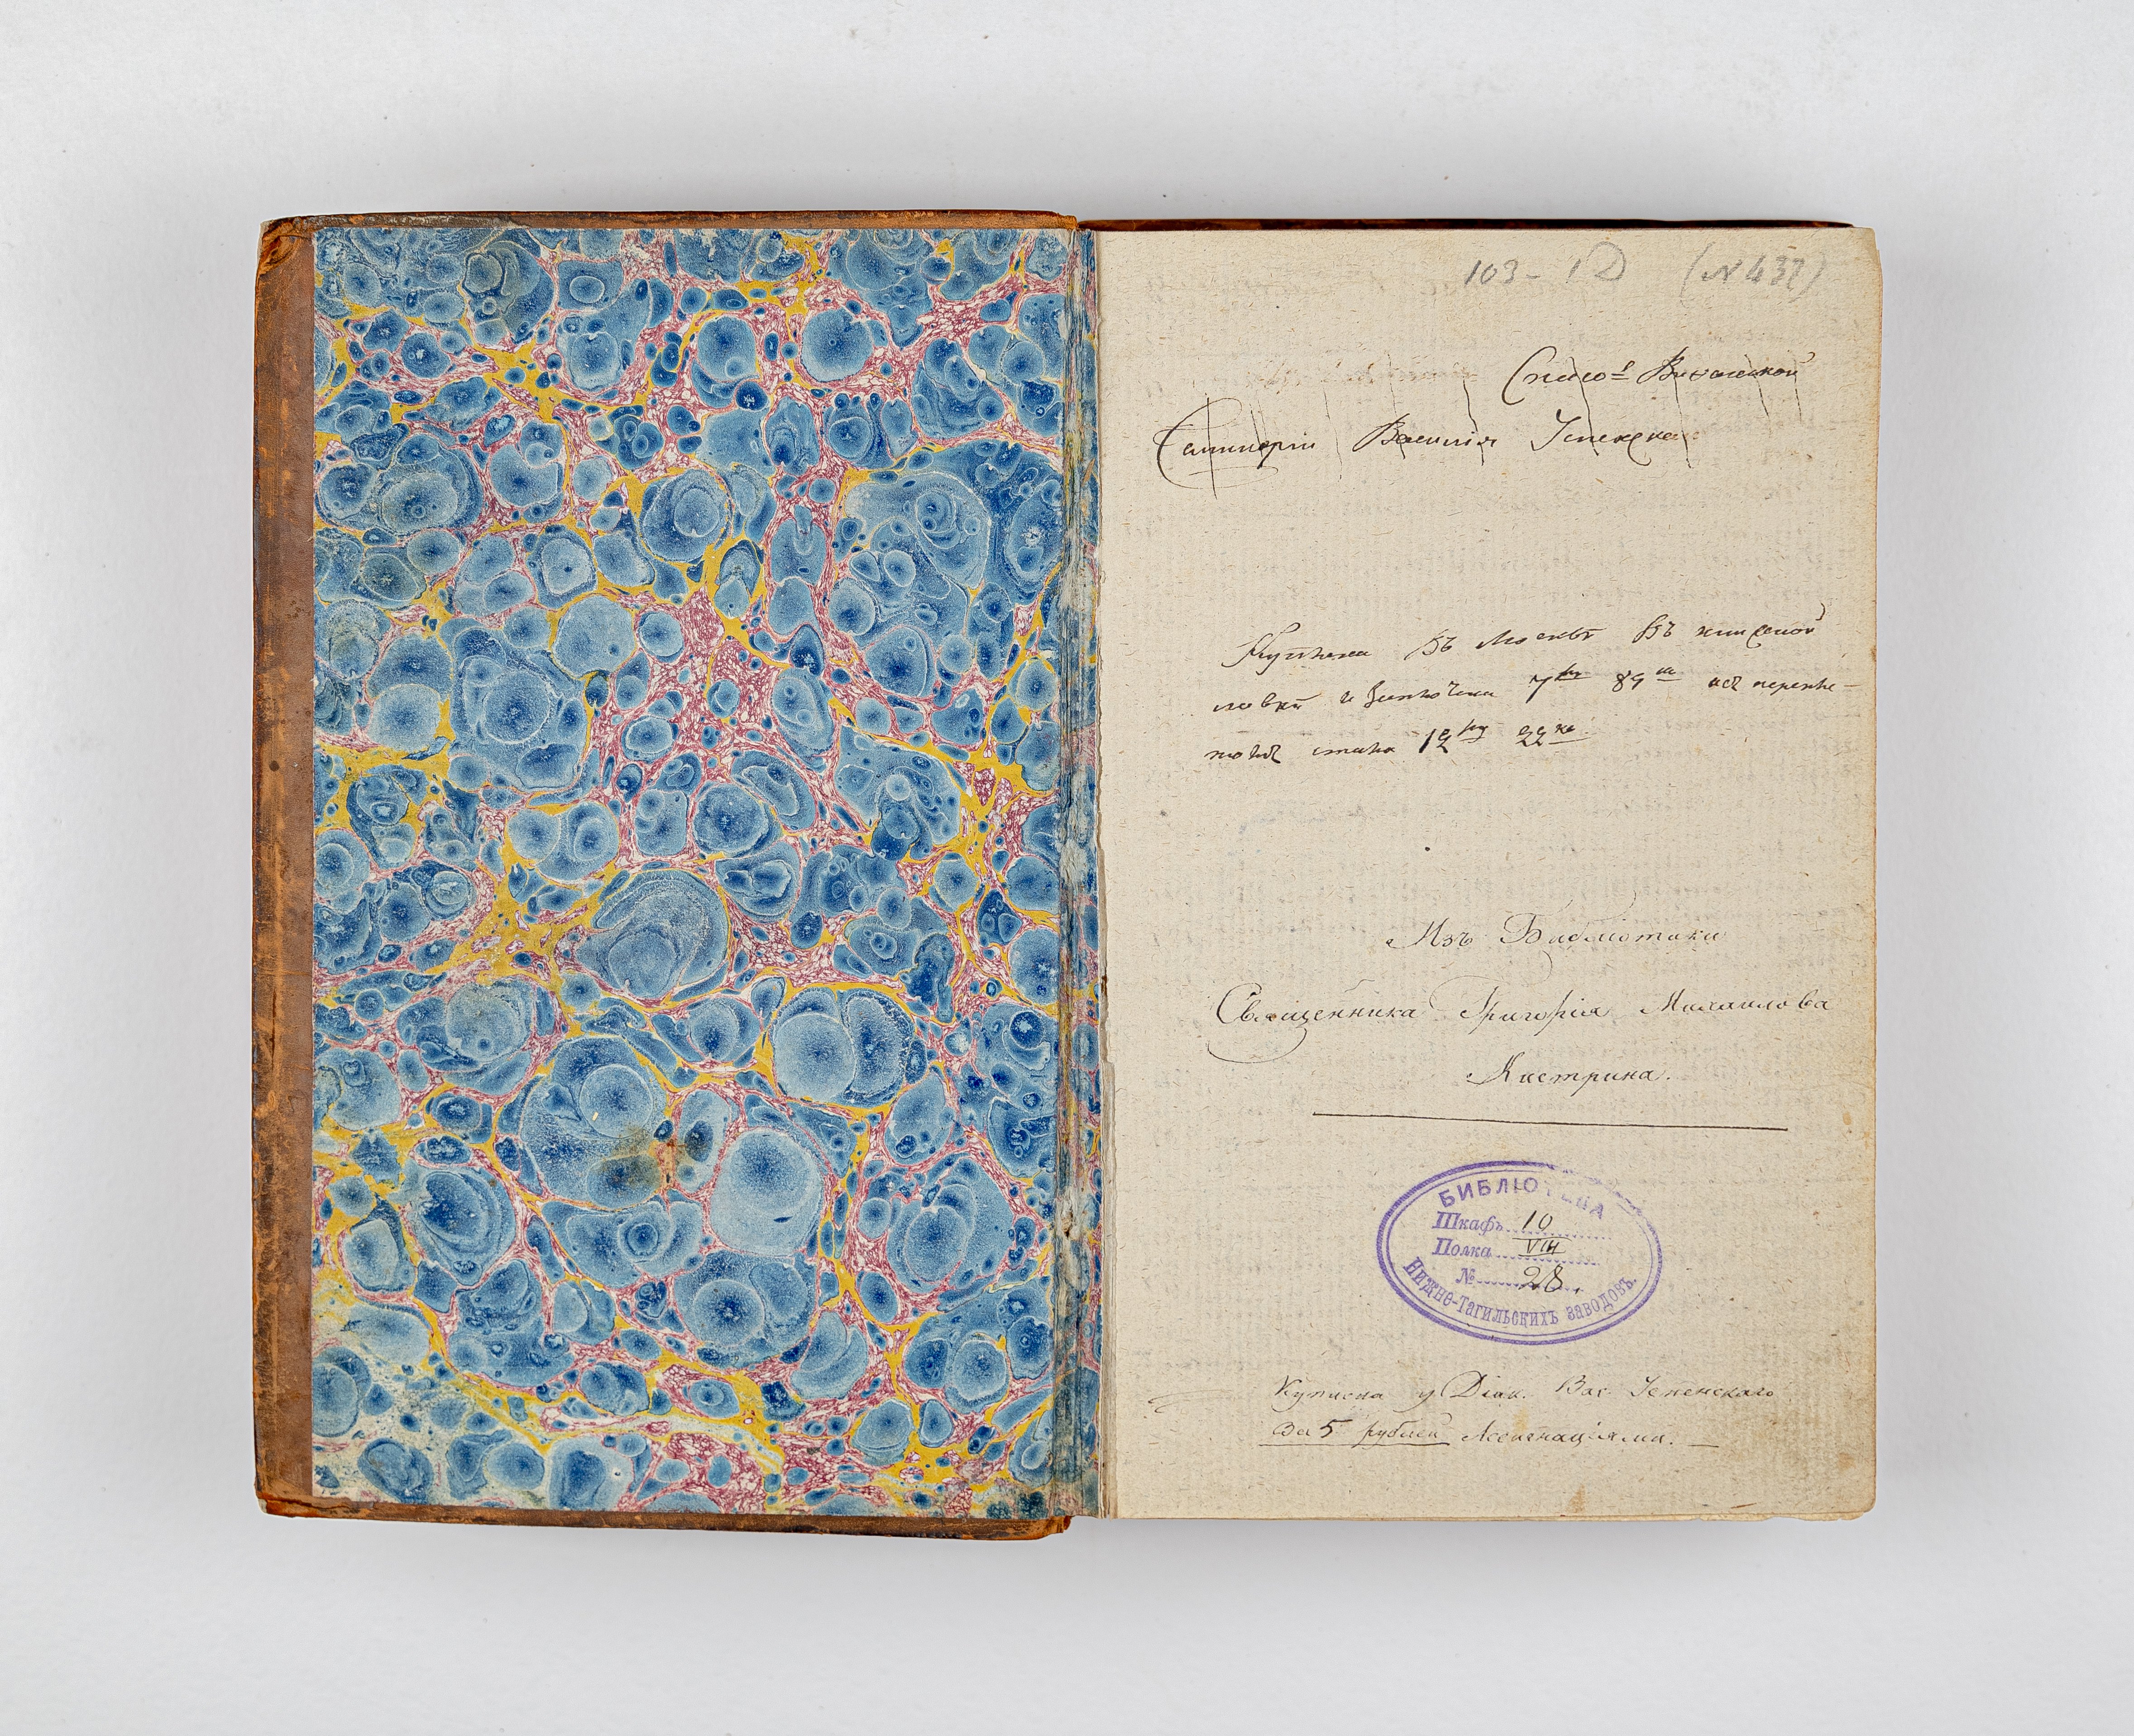 103 - 1 (N 437)
Спасо= Виѳанской
Семинаріи Василія
Куплена въ Москвѣ въ книжной
лавкѣ 7ру 89 съ перепле-
томъ стала 12ру 22ко.
Изъ Библіотеки
Священника Григорія Михаилова
Кастрина.
БИБЛІОТЕКА
Шкафъ 10
Полка VIII
№ 28.
Нижне-Тагильскихъ заводовъ.
Куплена у Діак. Вас. Успенскаго
За 5 рублей Ассигнаціями.